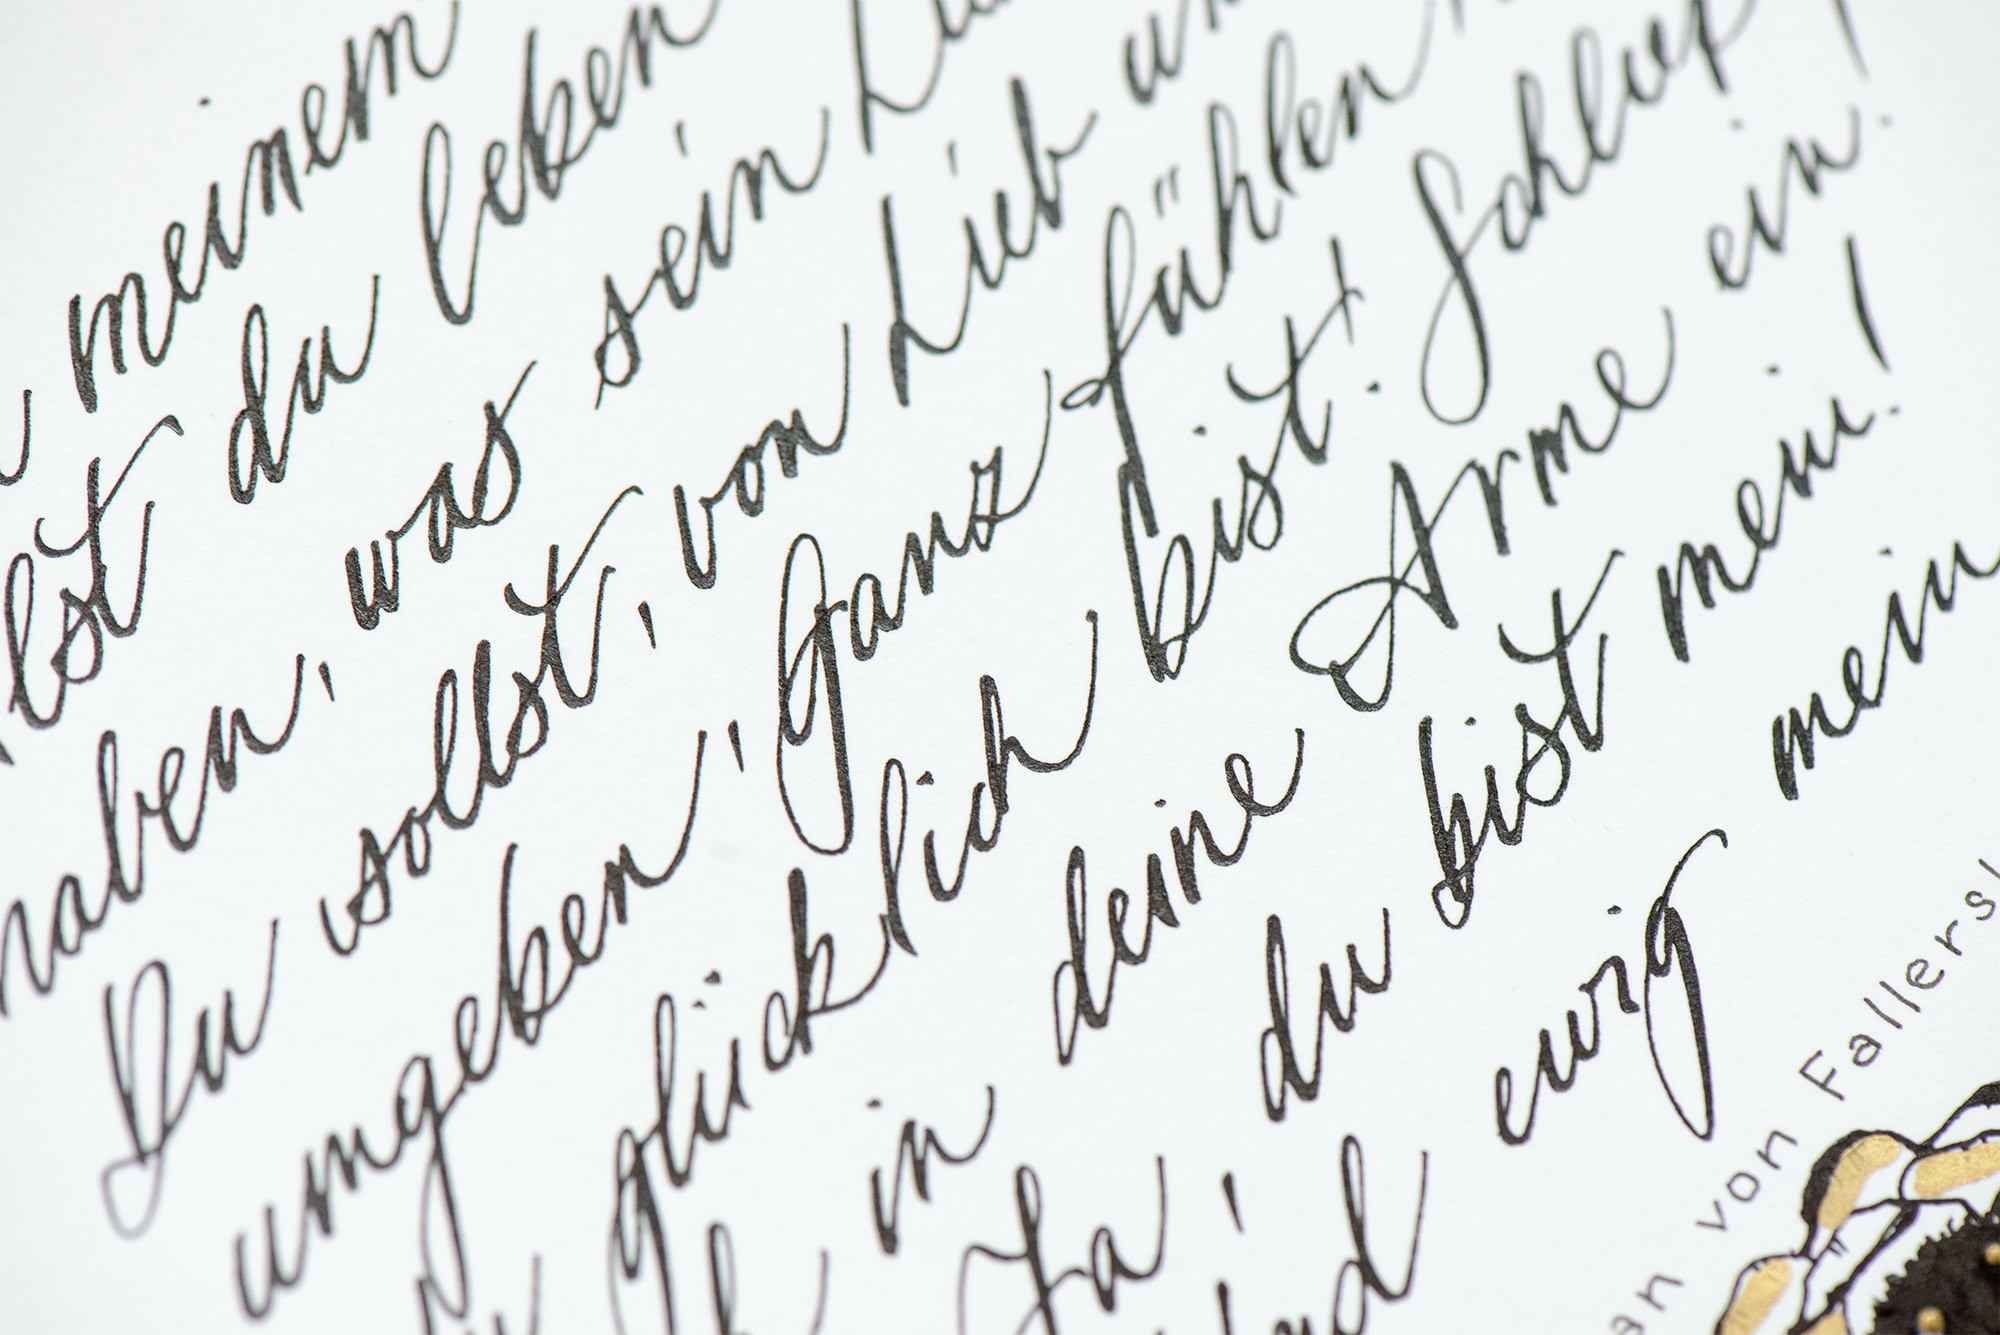 meinem
lst du leben
haben, was sein
Du sollst, von Lieb un
umgeben, Ganz fühlen
glücklich bist! Schließ
h in deine Arme ein!
Ja, du bist mein!
nd ewig mein
an von Fallersl